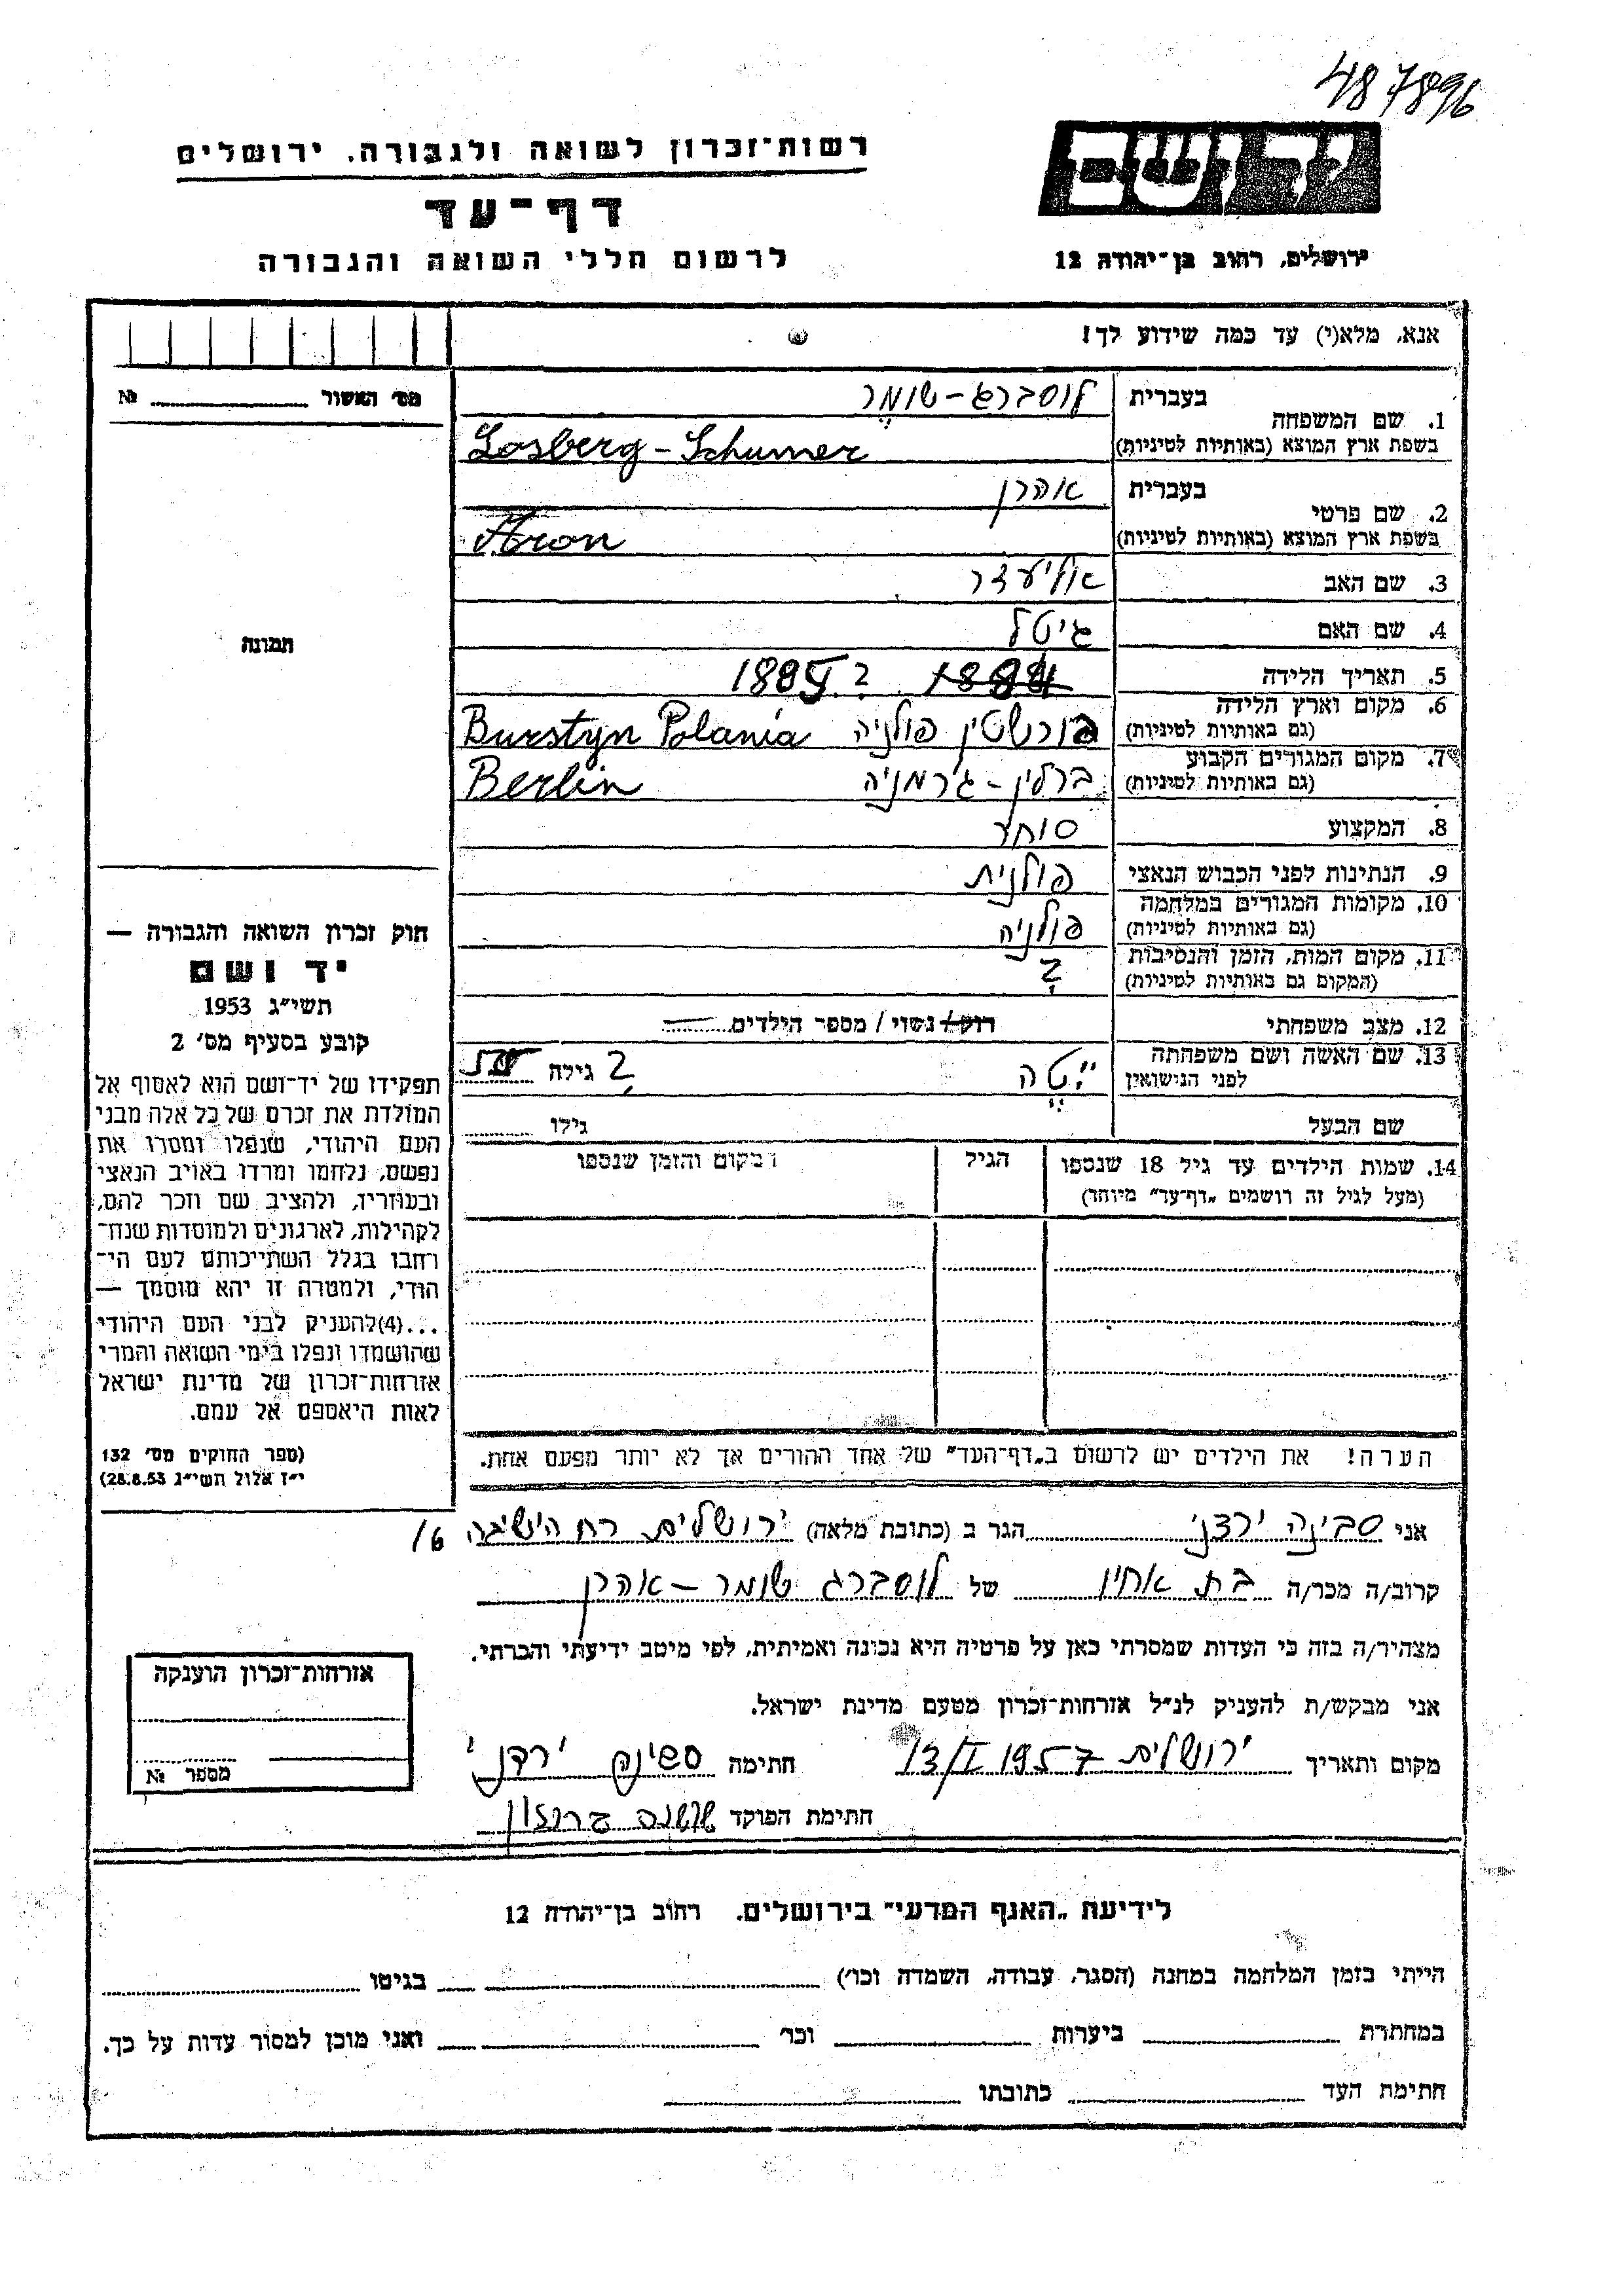 487896
רשות־זכרון לשואה ולגבורה, ירושלים
יד ושם
דף־עד
לרשום חללי השואה והגבורה
ירושלים, רחוב בן־יהודה 12
אנא, מלא(י) עד כמה שידוע לך!
מס׳ האשור № 
1. שם המשפחה
בעברית לוסברג-שומר
בשפת ארץ המוצא (באותיות לטיניות) Losberg-Schumer
2. שם פרטי
בעברית אהרן
בשפת ארץ המוצא (באותיות לטיניות) Aron
3. שם האב אליעזר
4. שם האם גיטל
תמונה
5. תאריך הלידה 1884 1885 ?
6. מקום וארץ הלידה
(גם באותיות לטיניות) בורשטין פולניה Burstyn Polania
7. מקום המגורים הקבוע
(גם באותיות לטיניות) ברלין-גרמניה Berlin
8. המקצוע סוחר
9. הנתינות לפני הכבוש הנאצי פולנית
10. מקומות המגורים במלחמה
(גם באותיות לטיניות) פולניה
11. מקום המות, הזמן והנסיבות
(המקום גם באותיות לטיניות) ?
12. מצב משפחתי רוק/ נשוי / מספר הילדים —
13. שם האשה ושם משפחתה
לפני הנישואין ייטה ? גילה
שם הבעל גילו
14. שמות הילדים עד גיל 18 שנספו
(מעל לגיל זה רושמים „דף־עד״ מיוחד)
הגיל
המקום והזמן שנספו
חוק זכרון השואה והגבורה —
יד ושם
תשי״ג 1953
קובע בסעיף מס׳ 2
תפקידו של יד־ושם הוא לאסוף אל
המולדת את זכרם של כל אלה מבני
העם היהודי, שנפלו ומסרו את
נפשם, נלחמו ומרדו באויב הנאצי
ובעוזריו, ולהציב שם וזכר להם,
לקהילות, לארגונים ולמוסדות שנח־
רבו בגלל השתייכותם לעם הי־
הודי, ולמטרה זו יהא מוסמך —
...(4)להעניק לבני העם היהודי
שהושמדו ונפלו בימי השואה והמרי
אזרחות־זכרון של מדינת ישראל
לאות היאספם אל עמם.
(ספר החוקים מס׳ 132
י״ז אלול תשי״ג 28.8.53)
הערה! את הילדים יש לרשום ב„דף־העד״ של אחד ההורים אך לא יותר מפעם אחת.
אני סבינה ירדני הגר ב (כתובת מלאה) ירושלים רח הישיבה 16
קרוב/ה מכר/ה בת אחיו של לוסברג שומר - אהרן
מצהיר/ה בזה כי העדות שמסרתי כאן על פרטיה היא נכונה ואמיתית, לפי מיטב ידיעתי והכרתי.
אני מבקש/ת להעניק לנ״ל אזרחות־זכרון מטעם מדינת ישראל.
מקום ותאריך ירושלים 13/I 1957 חתימה סבינה ירדני
חתימת הפוקד שושנה
אזרחות־זכרון הוענקה
מספר №
לידיעת „האגף המדעי״ בירושלים. רחוב בן־יהודה 12
הייתי בזמן המלחמה במחנה (הסגר, עבודה, השמדה וכו׳) בגיטו
במחתרת ביערות וכו׳ ואני מוכן למסור עדות על כך.
חתימת העד כתובתו